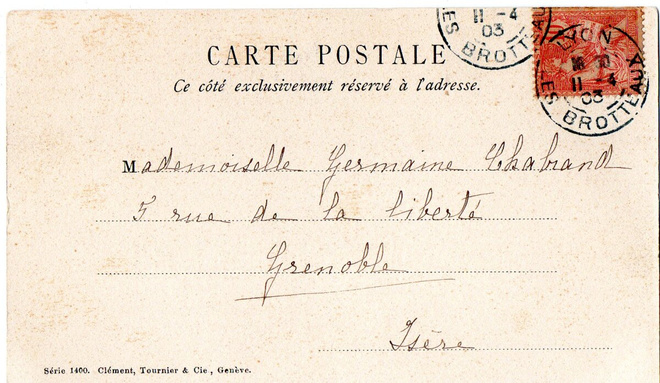 11 -4
03
LES BROTTEAUX
LYON
11 -4
03
LES BROTTEAUX
CARTE POSTALE
Ce côté exclusivement réservé à l'adresse.
Mademoiselle Germaine Chabrand
5 rue de la liberté
Grenoble
Isère
Série 1400. Clément, Tournier & Cie, Genève.